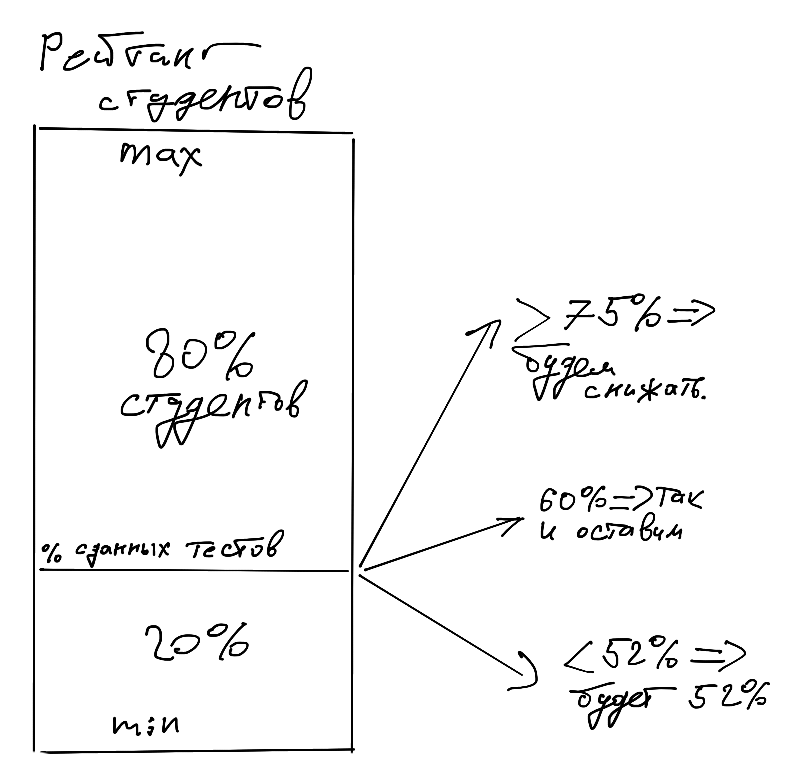 Рейтинг
студентов
max
80%
студентов
% сданных тестов
20%
min
≥ 75% =>
будем
снижать.
60% => так
и оставим
< 52% =>
будет 52%